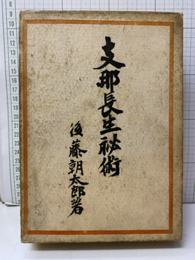 支那長生秘術
後藤朝太郎著